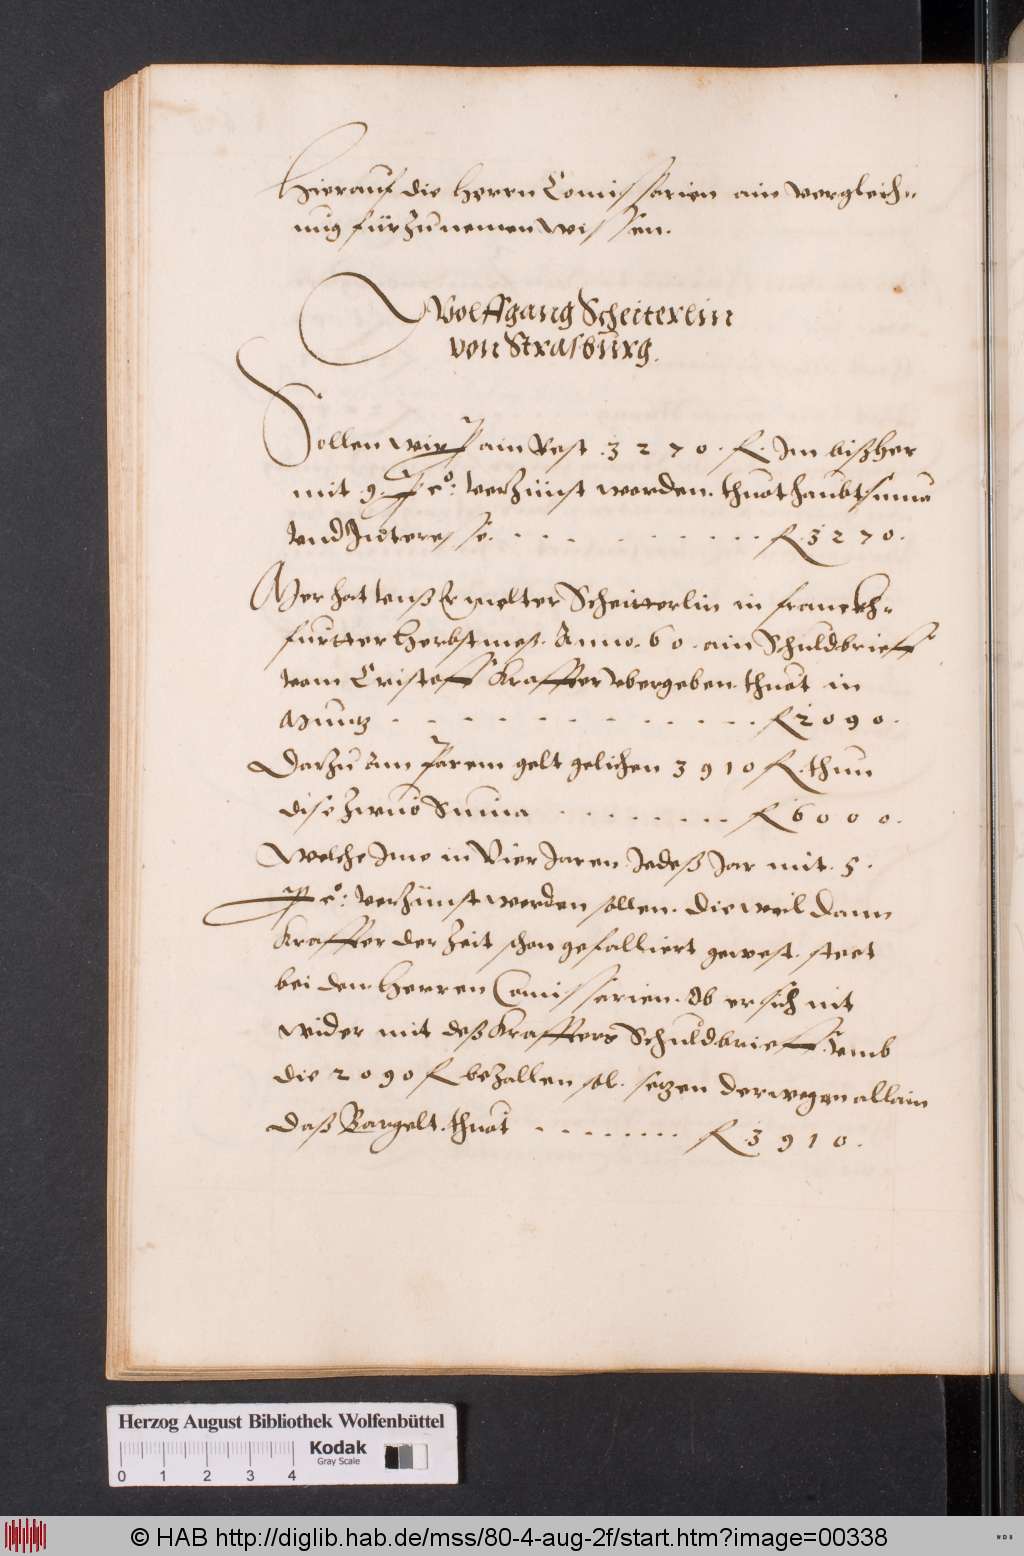 Hierauf die Herrn Comissarien ain vergleich=
nug fürzunemen wissen.
Wolffgang Scheiterlin
von Strasburg.
Sollen wir Per ain Rest .3270. fl. Im bißher
mit 9. P co: verzünst worden. thuot haubtsuma
vnd Intteresse. fl. 3270.
Mer hat vnß Ermelter Scheitterlin in franckh=
furtter Herbstmeß. Anno. 60. ain Schuldbrieff
vom Cristoff Kraffter vbergeben. thuot in
Muntz fl 2090.
Darzu Ann Parem gelt gelichen 3910 fl. thun
dise zwuo Suma fl 6000.
Welche Ime in Vier Jaren Jedeß Jar mit. 5.
P co: verzünst werden sollen. Dieweil dann
Kraffter der Zeit schon gefalliert gewest. steet
bei den Herren Comissarien. Ob er sich nit
wider mit deß Kraffters Schuldbrieff. vmb
die 2090 fl bezallen sol. setzen derwegen allain
daß Bargelt. thuot fl. 3910.
Herzog August Bibliothek Wolfenbüttel
Kodak
Gray Scale
0 1 2 3 4
© HAB http://diglib.hab.de/mss/80-4-aug-2f/start.htm?image=00338